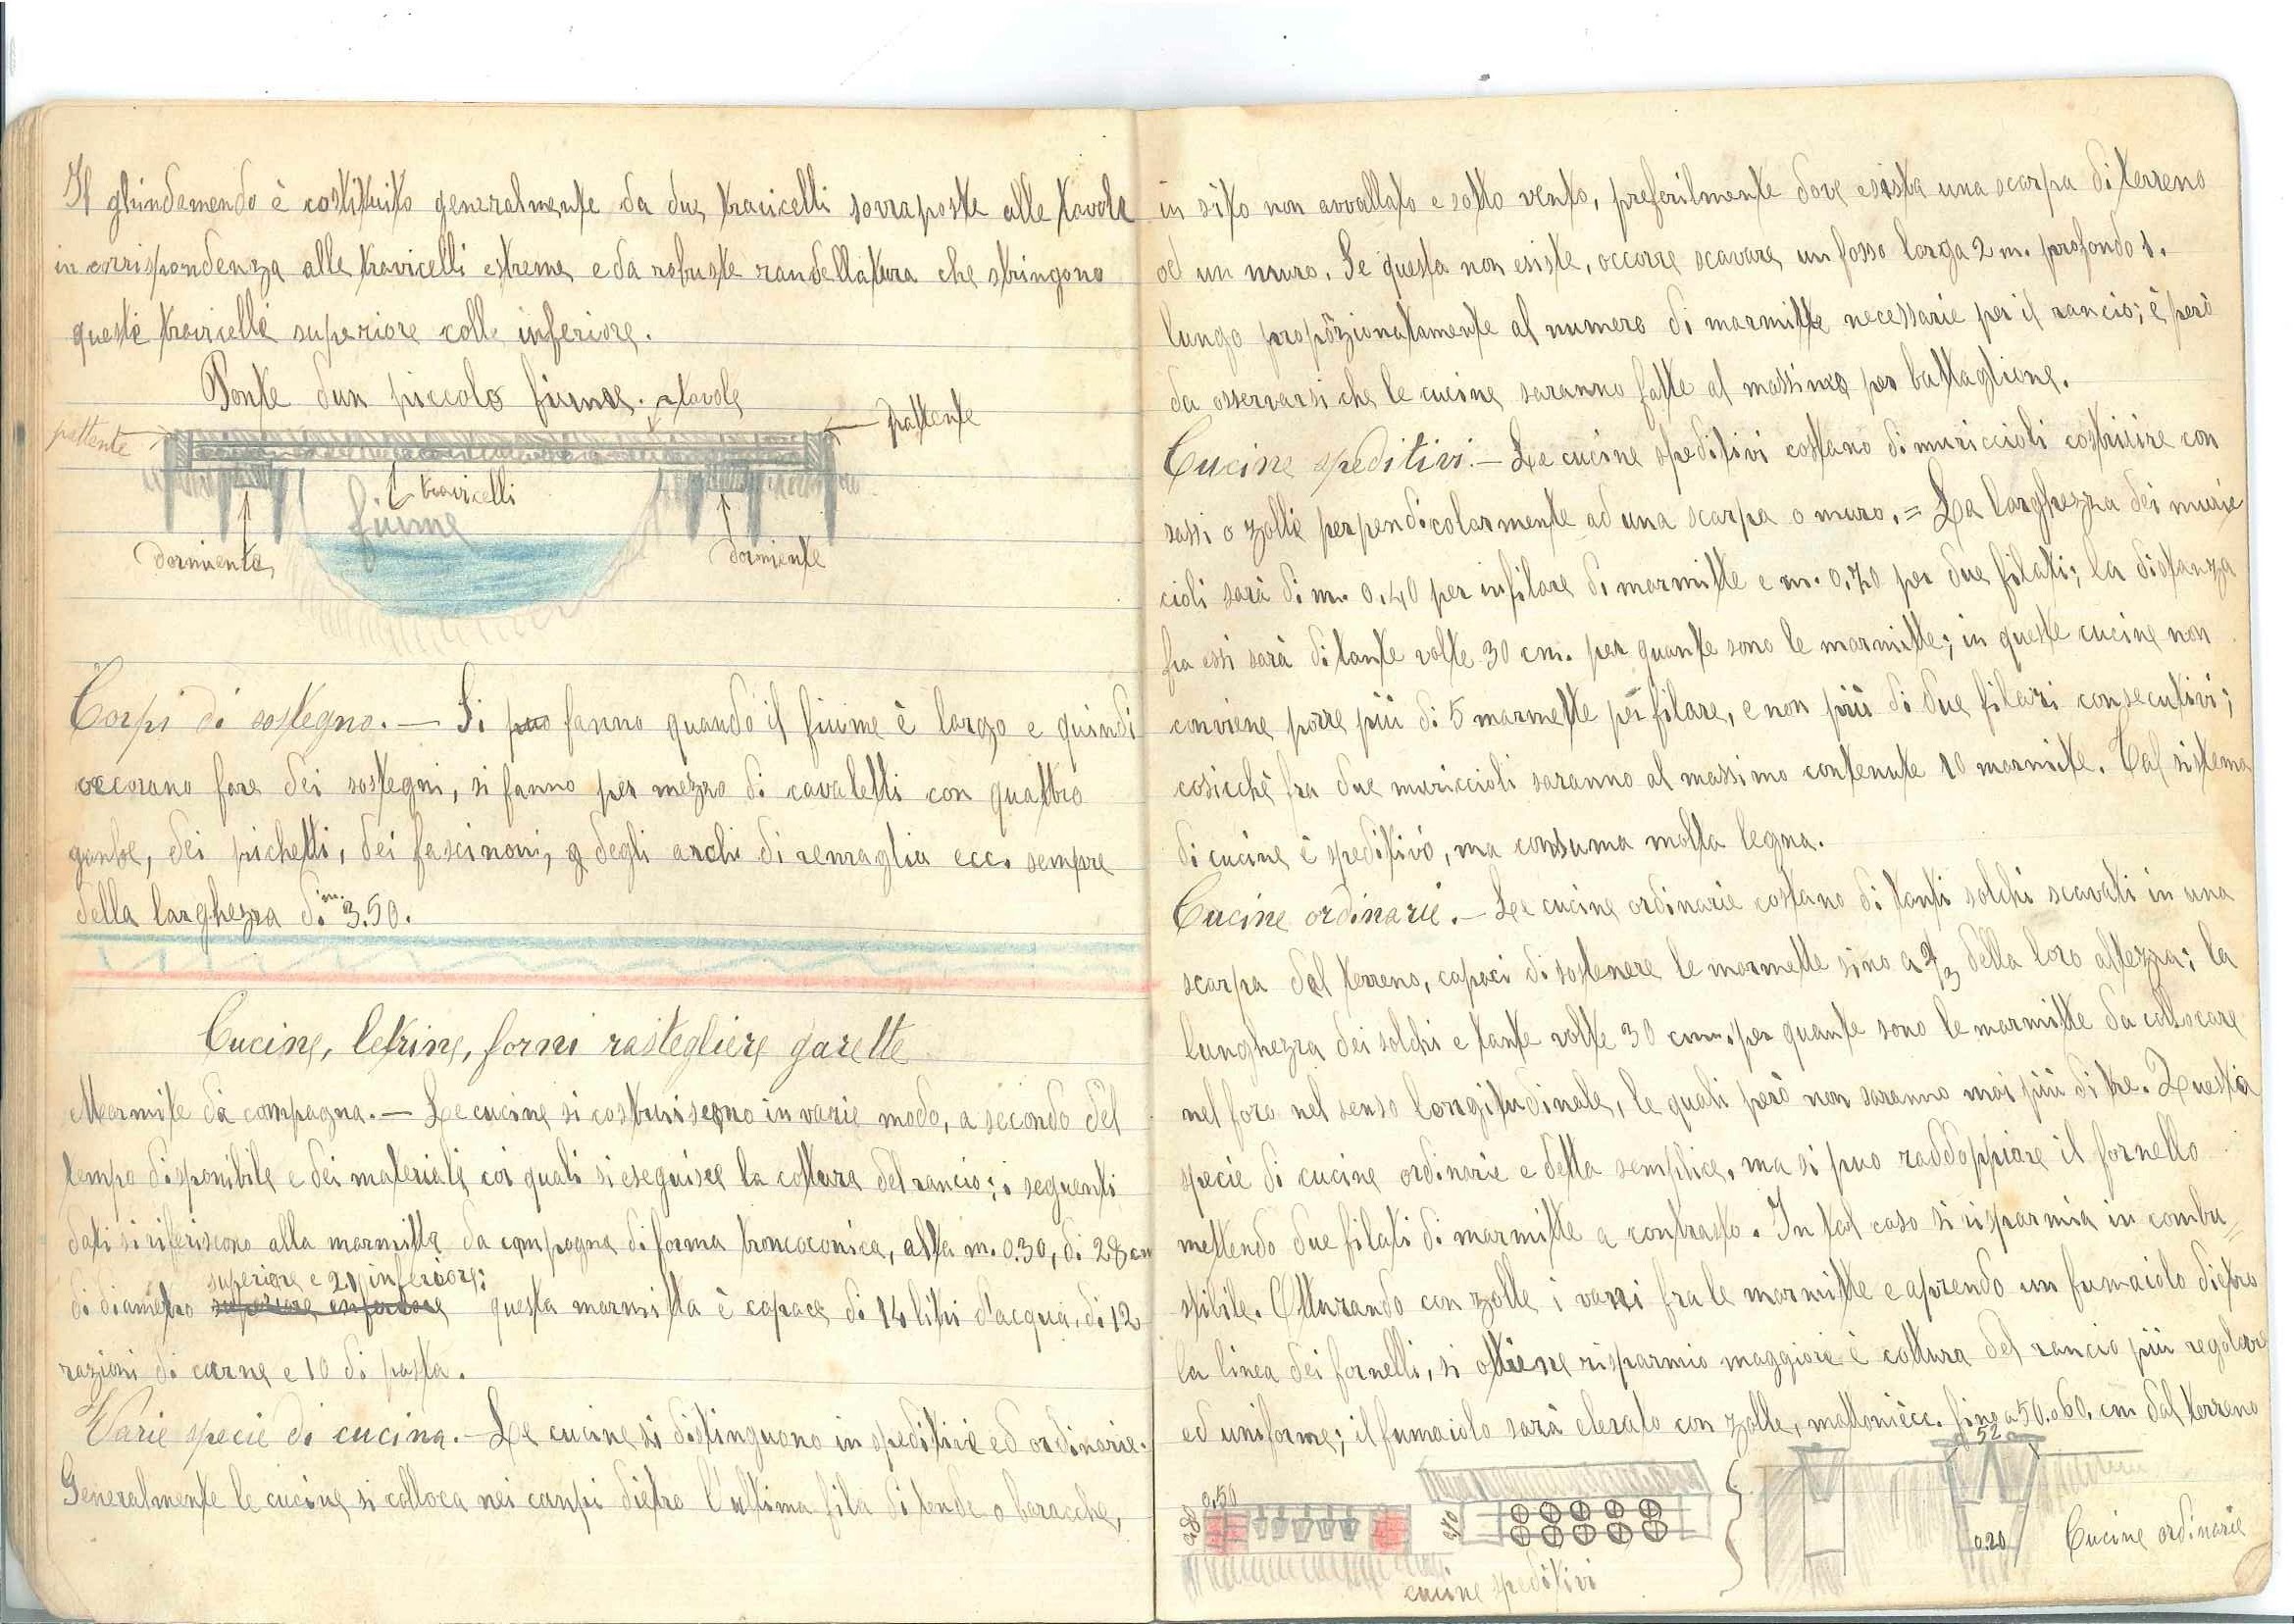 Il ghindemendo è costituito generalmente da due travicelli sovraposte alle tavole
in corrispondenza alle travicelli estreme e da robuste randellatura che stringono
queste travicelle superiore colle inferiore.
Ponte d'un piccolo fiume. tavole
pattente
pattente
travicelli
fiume
dormiente
dormiente
Corpi di sostegno. — Si fanno quando il fiume è largo e quindi
occorano fare dei sostegni, si fanno per mezzo di cavaletti con quattro
gambe, dei pichetti, dei fascinoni, degli archi di ecc. sempre
della larghezza di m. 3.50.
Cucine, letrine, forni rastegliere garette
Marmite da campagna. — Le cucine si costruiscono in varie modo, a secondo del
tempo disponibile e dei materiali coi quali si eseguisce la cottura del rancio; i seguenti
dati si riferiscono alla marmitta da campagna di forma troncoconica, alta m. 0.30, di 28 cm
superiore e 20 inferiore;
di diametro superiore inferiore questa marmitta è capace di 14 litri d'acqua, di 12
razioni di carne e 10 di pasta.
Varie specie di cucina. — Le cucine si distinguono in speditivi ed ordinarie.
Generalmente le cucine si colloca nei campi dietro l'ultima fila di tende o baracche,
in sito non avvallato e sotto vento, preferilmente dove esista una scarpa di terreno
od un muro. Se questa non esiste, occorre scavare un fosso larga 2 m. profondo 1.
lungo proporzionatamente al numero di marmitte necessarie per il rancio; è però
da osservarsi che le cucine saranno fatte al massimo per battaglione.
Cucine speditivi. — Le cucine speditivi costano di muriccioli costruire con
sassi o zolle perpendicolarmente ad una scarpa o muro. = La larghezza dei muric
cioli sarà di m. 0.40 per infilare di marmitte e m. 0.70 per due filati; la distanza
fra essi sarà di tante volte 30 cm. per quante sono le marmitte; in queste cucine non
conviene porre più di 5 marmette per filare, e non più di due filari consecutivi;
cosicchè fra due muriccioli saranno al massimo contenute 10 marmite. Tal sistema
di cucine è speditivo, ma consuma molta legna.
Cucine ordinarie. — Le cucine ordinarie costano di tanti solchi scavati in una
scarpa del terreno, capaci di sostenere le marmette sino a 2/3 della loro altezza; la
lunghezza dei solchi e tante volte 30 cm. per quante sono le marmitte da collocare
nel foro nel senso longitudinale, le quali però non saranno mai più di tre. Questa
specie di cucine ordinarie e detta semplice, ma si può raddoppiare il fornello
mettendo due filati di marmitte a contrasto. In tal caso si risparmia in combu=
stibile. Otturando con zolle i vani fra le marmitte e aprendo un fumaiolo dietro
la linea dei fornelli, si ottiene risparmio maggiore è cottura del rancio più regolare
ed uniforme; il fumaiolo sarà elevato con zolle, mattoni ecc. fino a 50 o 60 cm dal terreno
0.50
52
0.20
cucine speditivi
Cucine ordinarie